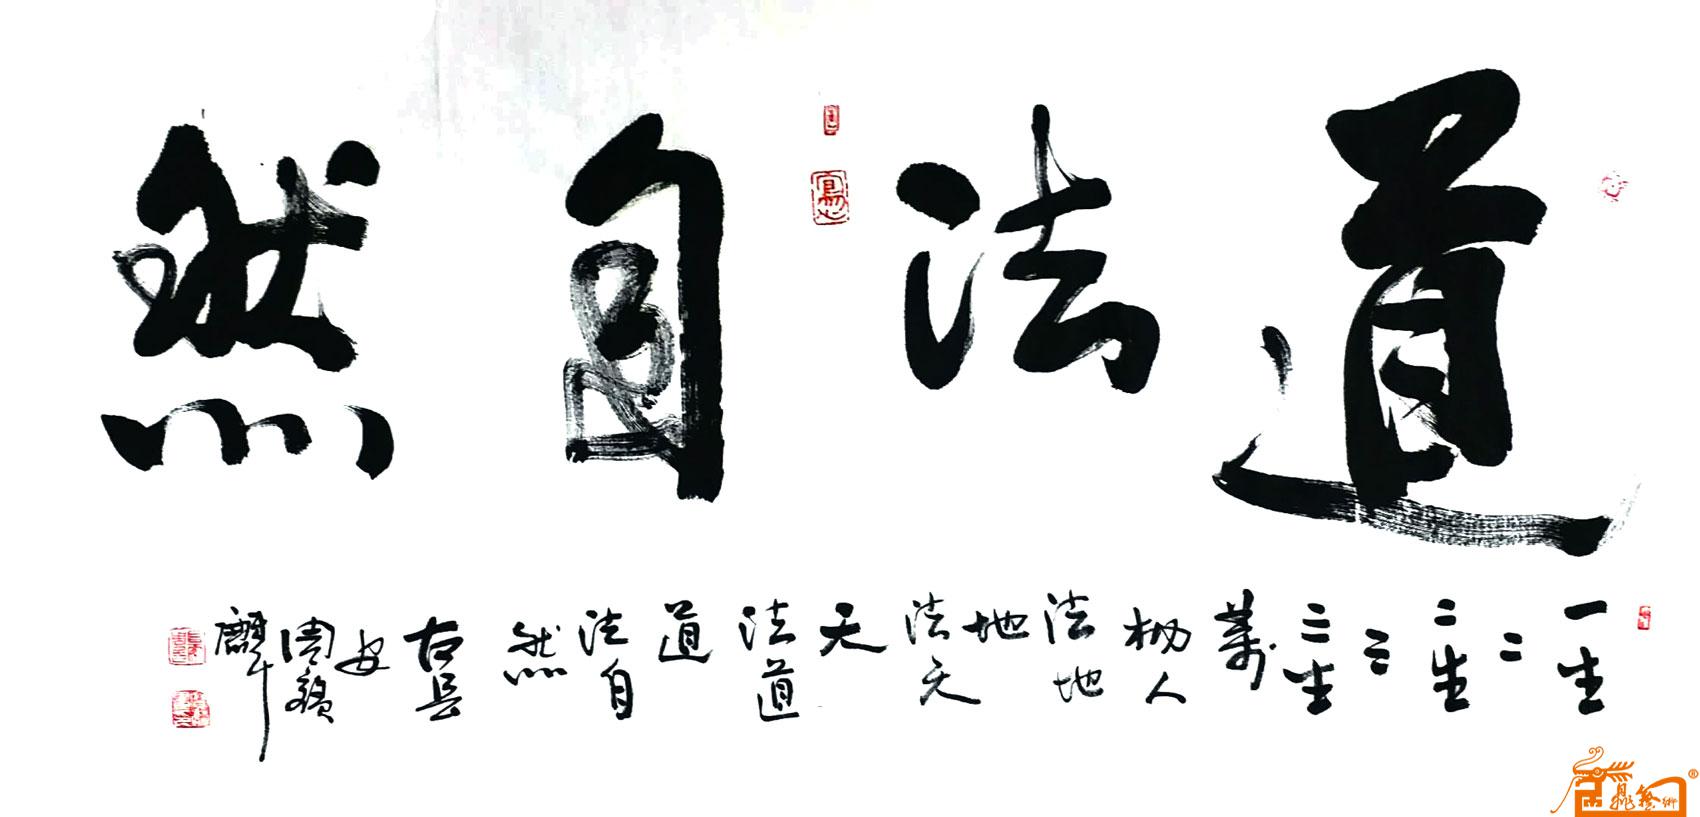 道法自然
一生二二生三三生萬物人法地地法天天法道道法自然
寫心